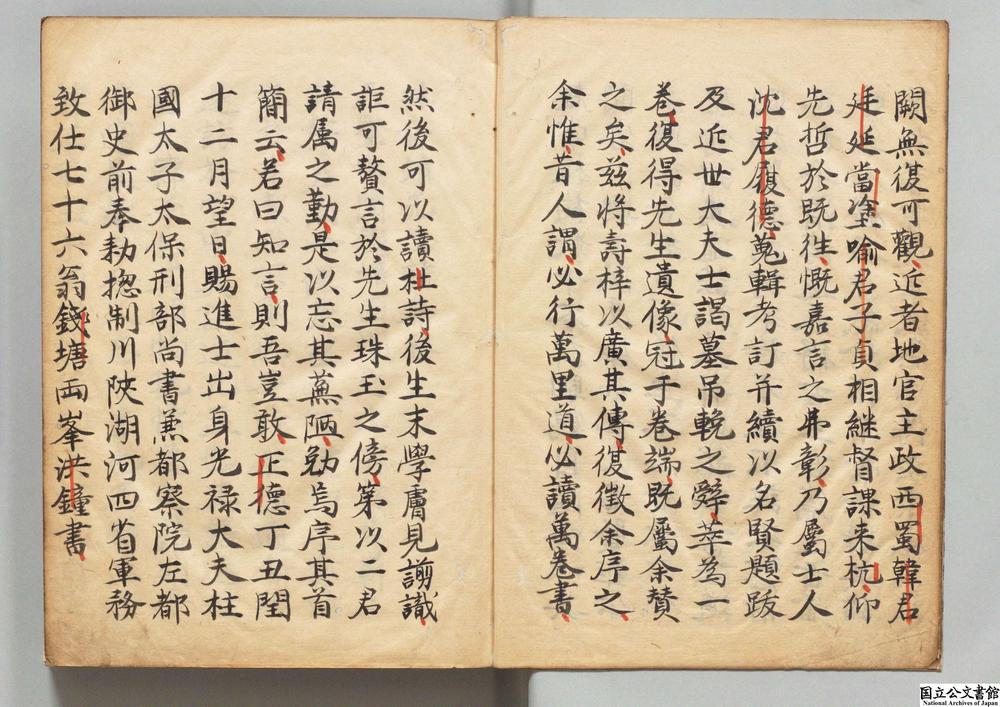 闕無復可觀近者地官主政西蜀韓君
廷延當塗喻君子貞相継督課来杭仰
先哲於既徃慨嘉言之弗彰乃屬士人
沈君履德蒐輯考訂并續以名賢題跋
及近世大夫士謁墓吊輓之辭萃為一
卷復得先生遺像冠于卷端既屬余賛
之矣兹將壽梓以廣其傳復徴余序之
余惟昔人謂必行萬里道必讀萬卷書
然後可以讀杜詩後生末學膚見謭識
詎可贅言於先生珠玉之傍第以二君
請属之勤是以忘其蕪陋勉焉序其首
簡云若曰知言則吾豈敢正德丁丑閏
十二月望日賜進士出身光禄大夫柱
國太子太保刑部尚書兼都察院左都
御史前奉勑揔制川陜湖河四省軍務
致仕七十六翁錢塘兩峯洪鐘書
国立公文書館
National Archives of Japan